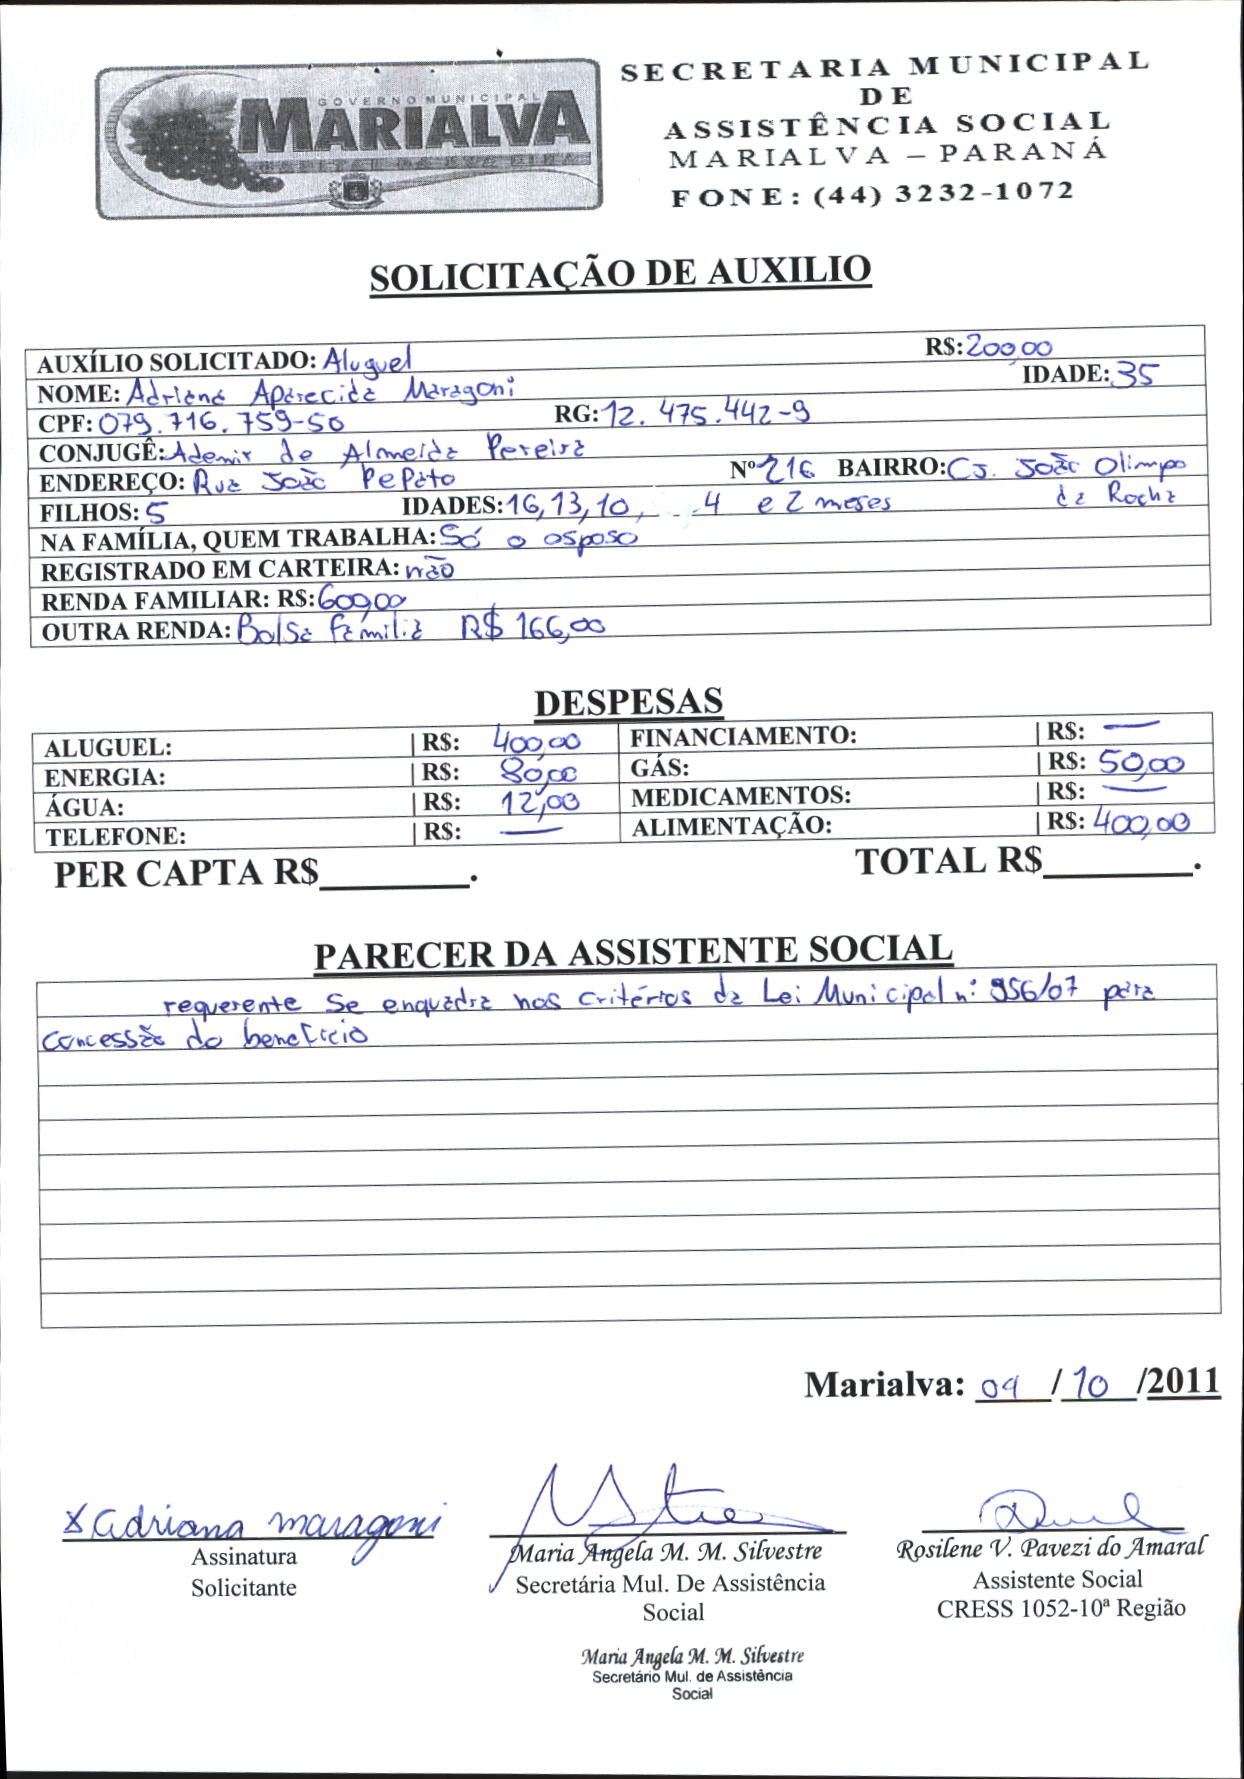 GOVERNO MUNICIPAL
MARIALVA
CAPITAL DA UVA FINA
SECRETARIA MUNICIPAL
DE
ASSISTÊNCIA SOCIAL
MARIALVA – PARANÁ
FONE: (44) 3232-1072
SOLICITAÇÃO DE AUXILIO
AUXÍLIO SOLICITADO: Aluguel R$: 200,00
NOME: Adriana Aparecida Maragoni IDADE: 35
CPF: 079.716.759-50 RG: 12.475.442-9
CONJUGÊ: Ademir de Almeida Pereira
ENDEREÇO: Rua João Pepato Nº 216 BAIRRO: Cj. João Olimpo
da Rocha
FILHOS: 5 IDADES: 16, 13, 10, 4 e 2 meses
NA FAMÍLIA, QUEM TRABALHA: Só o osposo
REGISTRADO EM CARTEIRA: não
RENDA FAMILIAR: R$: 600,00
OUTRA RENDA: Bolsa Família R$ 166,00
DESPESAS
ALUGUEL: | R$: 400,00 FINANCIAMENTO: | R$: —
ENERGIA: | R$: 80,00 GÁS: | R$: 50,00
ÁGUA: | R$: 12,00 MEDICAMENTOS: | R$: —
TELEFONE: | R$: — ALIMENTAÇÃO: | R$: 400,00
PER CAPTA R$________. TOTAL R$________.
PARECER DA ASSISTENTE SOCIAL
requerente se enquadra nos critérios da Lei Municipal nº 956/07 para
concessão do benefício
Marialva: 04 / 10 /2011
x Adriana maragoni
Assinatura
Solicitante
Maria Angela M. M. Silvestre
Secretária Mul. De Assistência
Social
Rosilene V. Pavezi do Amaral
Assistente Social
CRESS 1052-10ª Região
Maria Angela M. M. Silvestre
Secretário Mul. de Assistência
Social